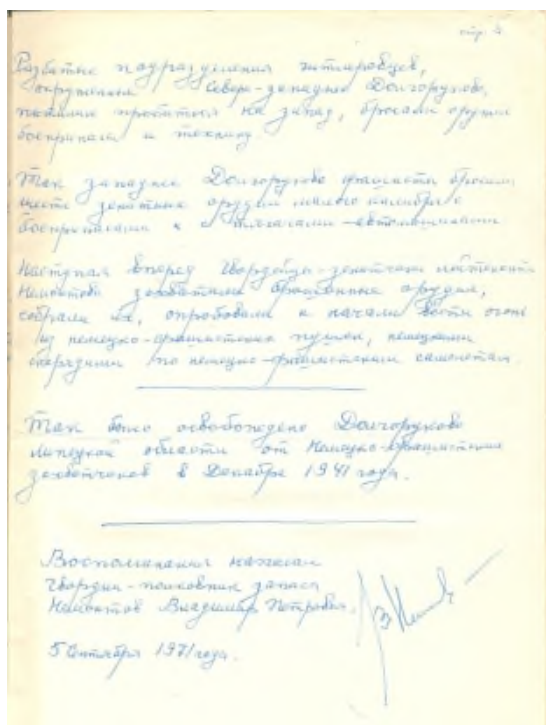 стр. 4
Разбитые подразделения гитлеровцев,
окруженные Северо-западнее Долгоруково,
пытались пробиться на запад, бросали оружие
боеприпасы и технику
Так западнее Долгоруково фашисты бросили
шесть зенитных орудий малого калибра с
боеприпасами и с тягачами-автомашинами
Наступая вперед Гвардейцы-зенитчики лейтенанта
захватили брошенные орудия,
собрали их, опробовали и начали вести огонь
из немецко-фашистских пушек, немецкими
снарядами по немецко-фашистским самолетам.
Так было освобождено Долгоруково
Липецкой области от Немецко-фашистских
захватчиков в Декабре 1941 года.
Воспоминания написал
Гвардии-полковник запаса
Владимир Петрович.
5 Сентября 1971 года.